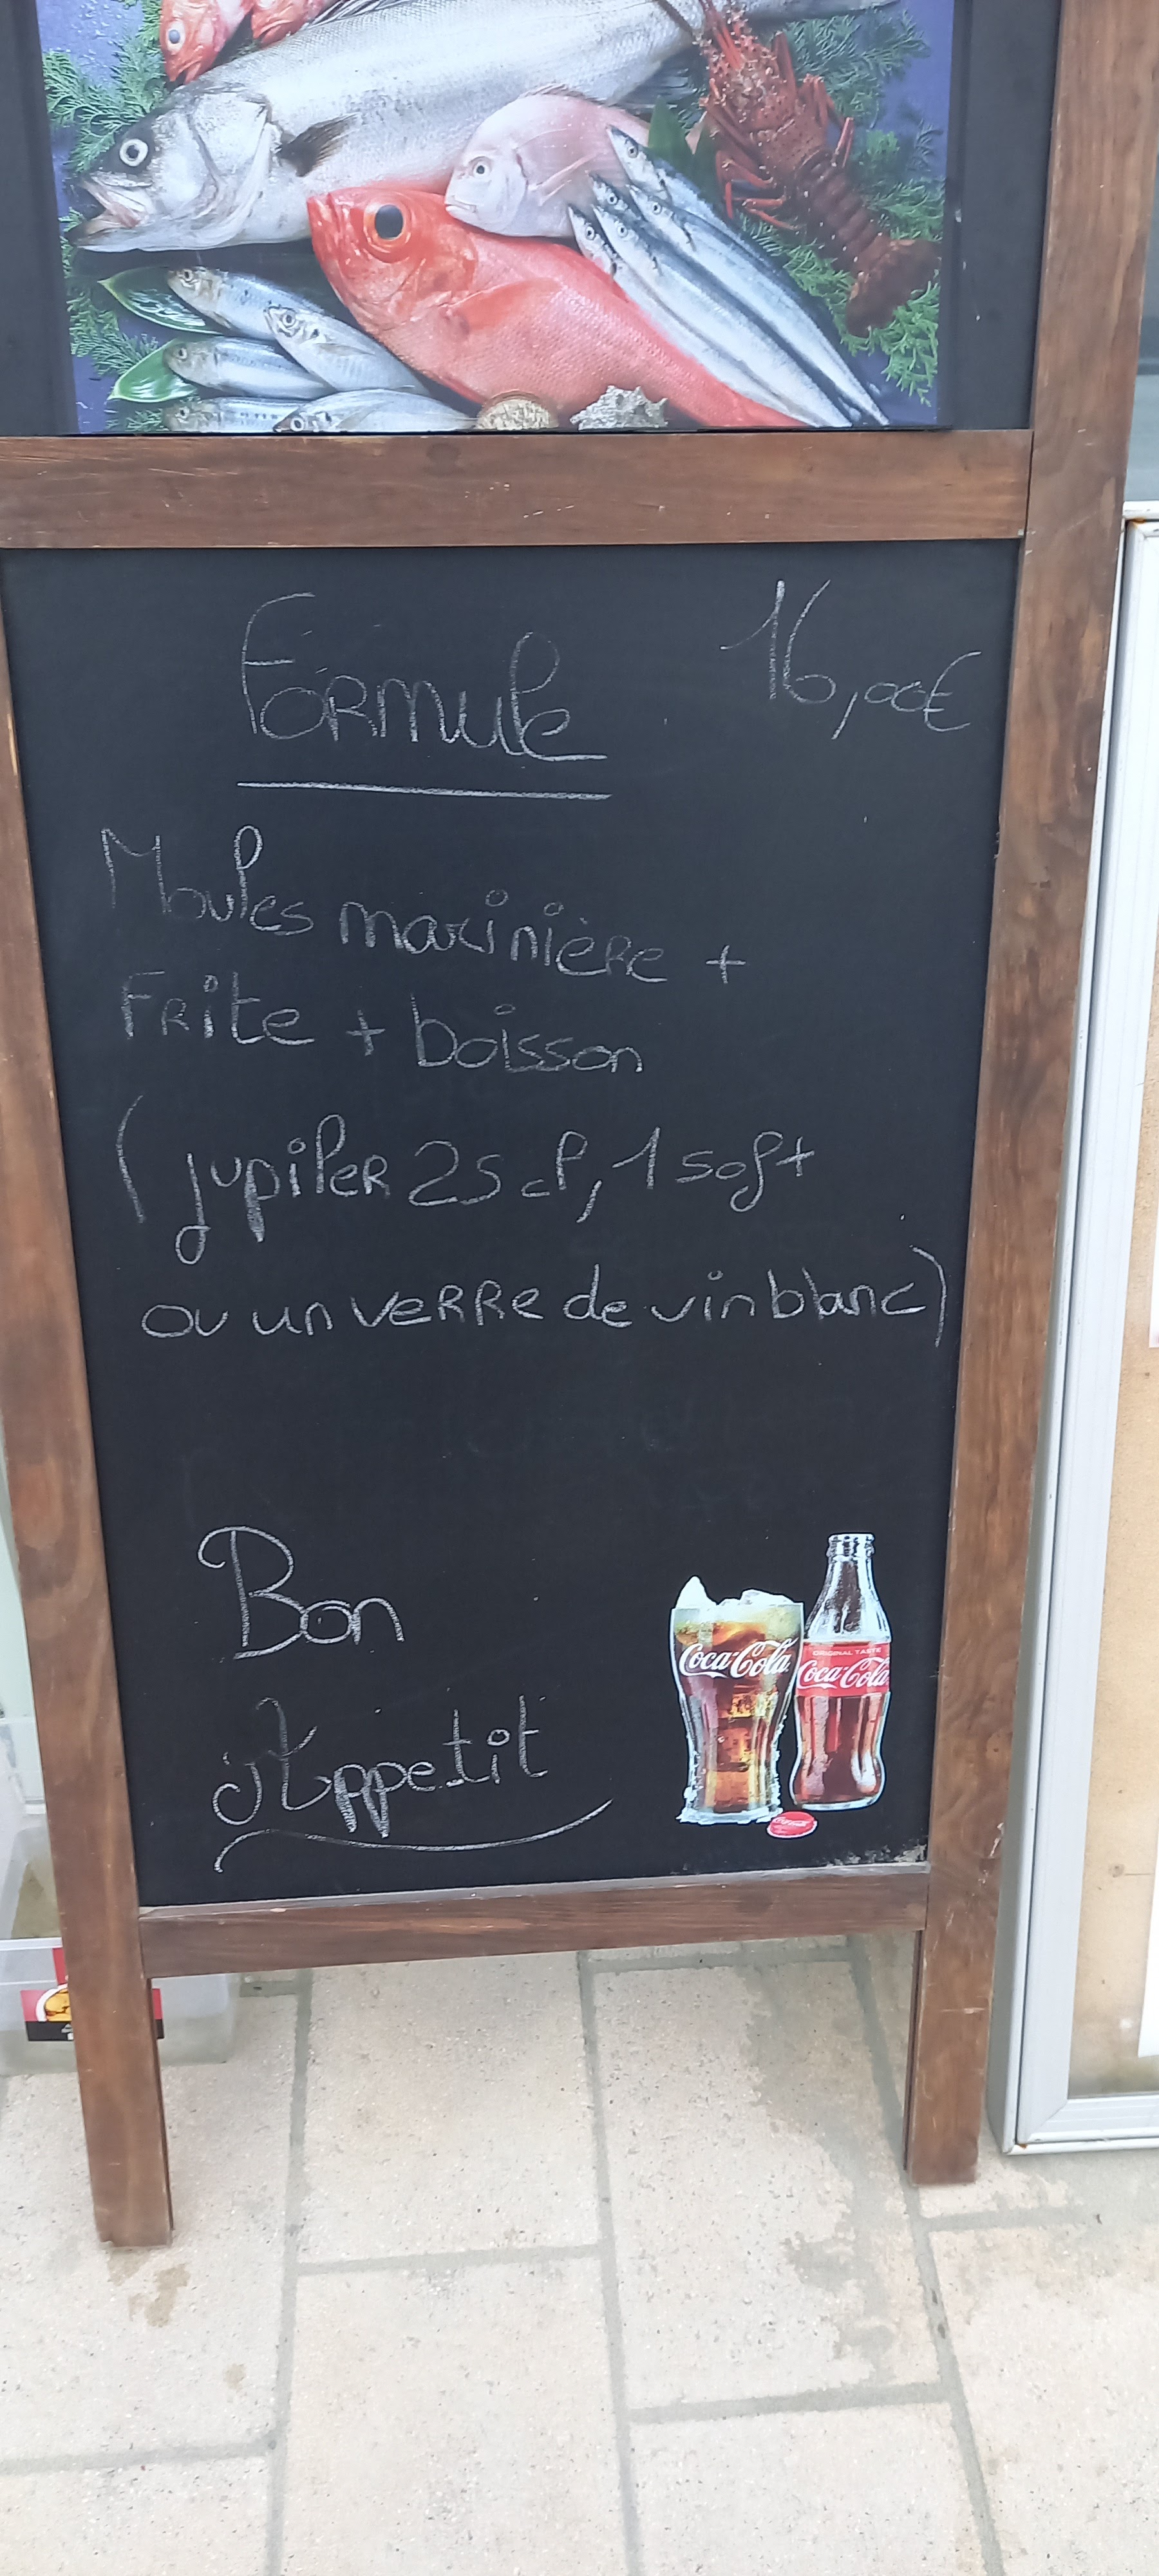 Formule 16,00€
Moules marinière +
Frite + boisson
(jupiler 25 cl, 1 soft
ou un verre de vin blanc)
Bon
Appetit
Coca-Cola
ORIGINAL TASTE
Coca-Cola